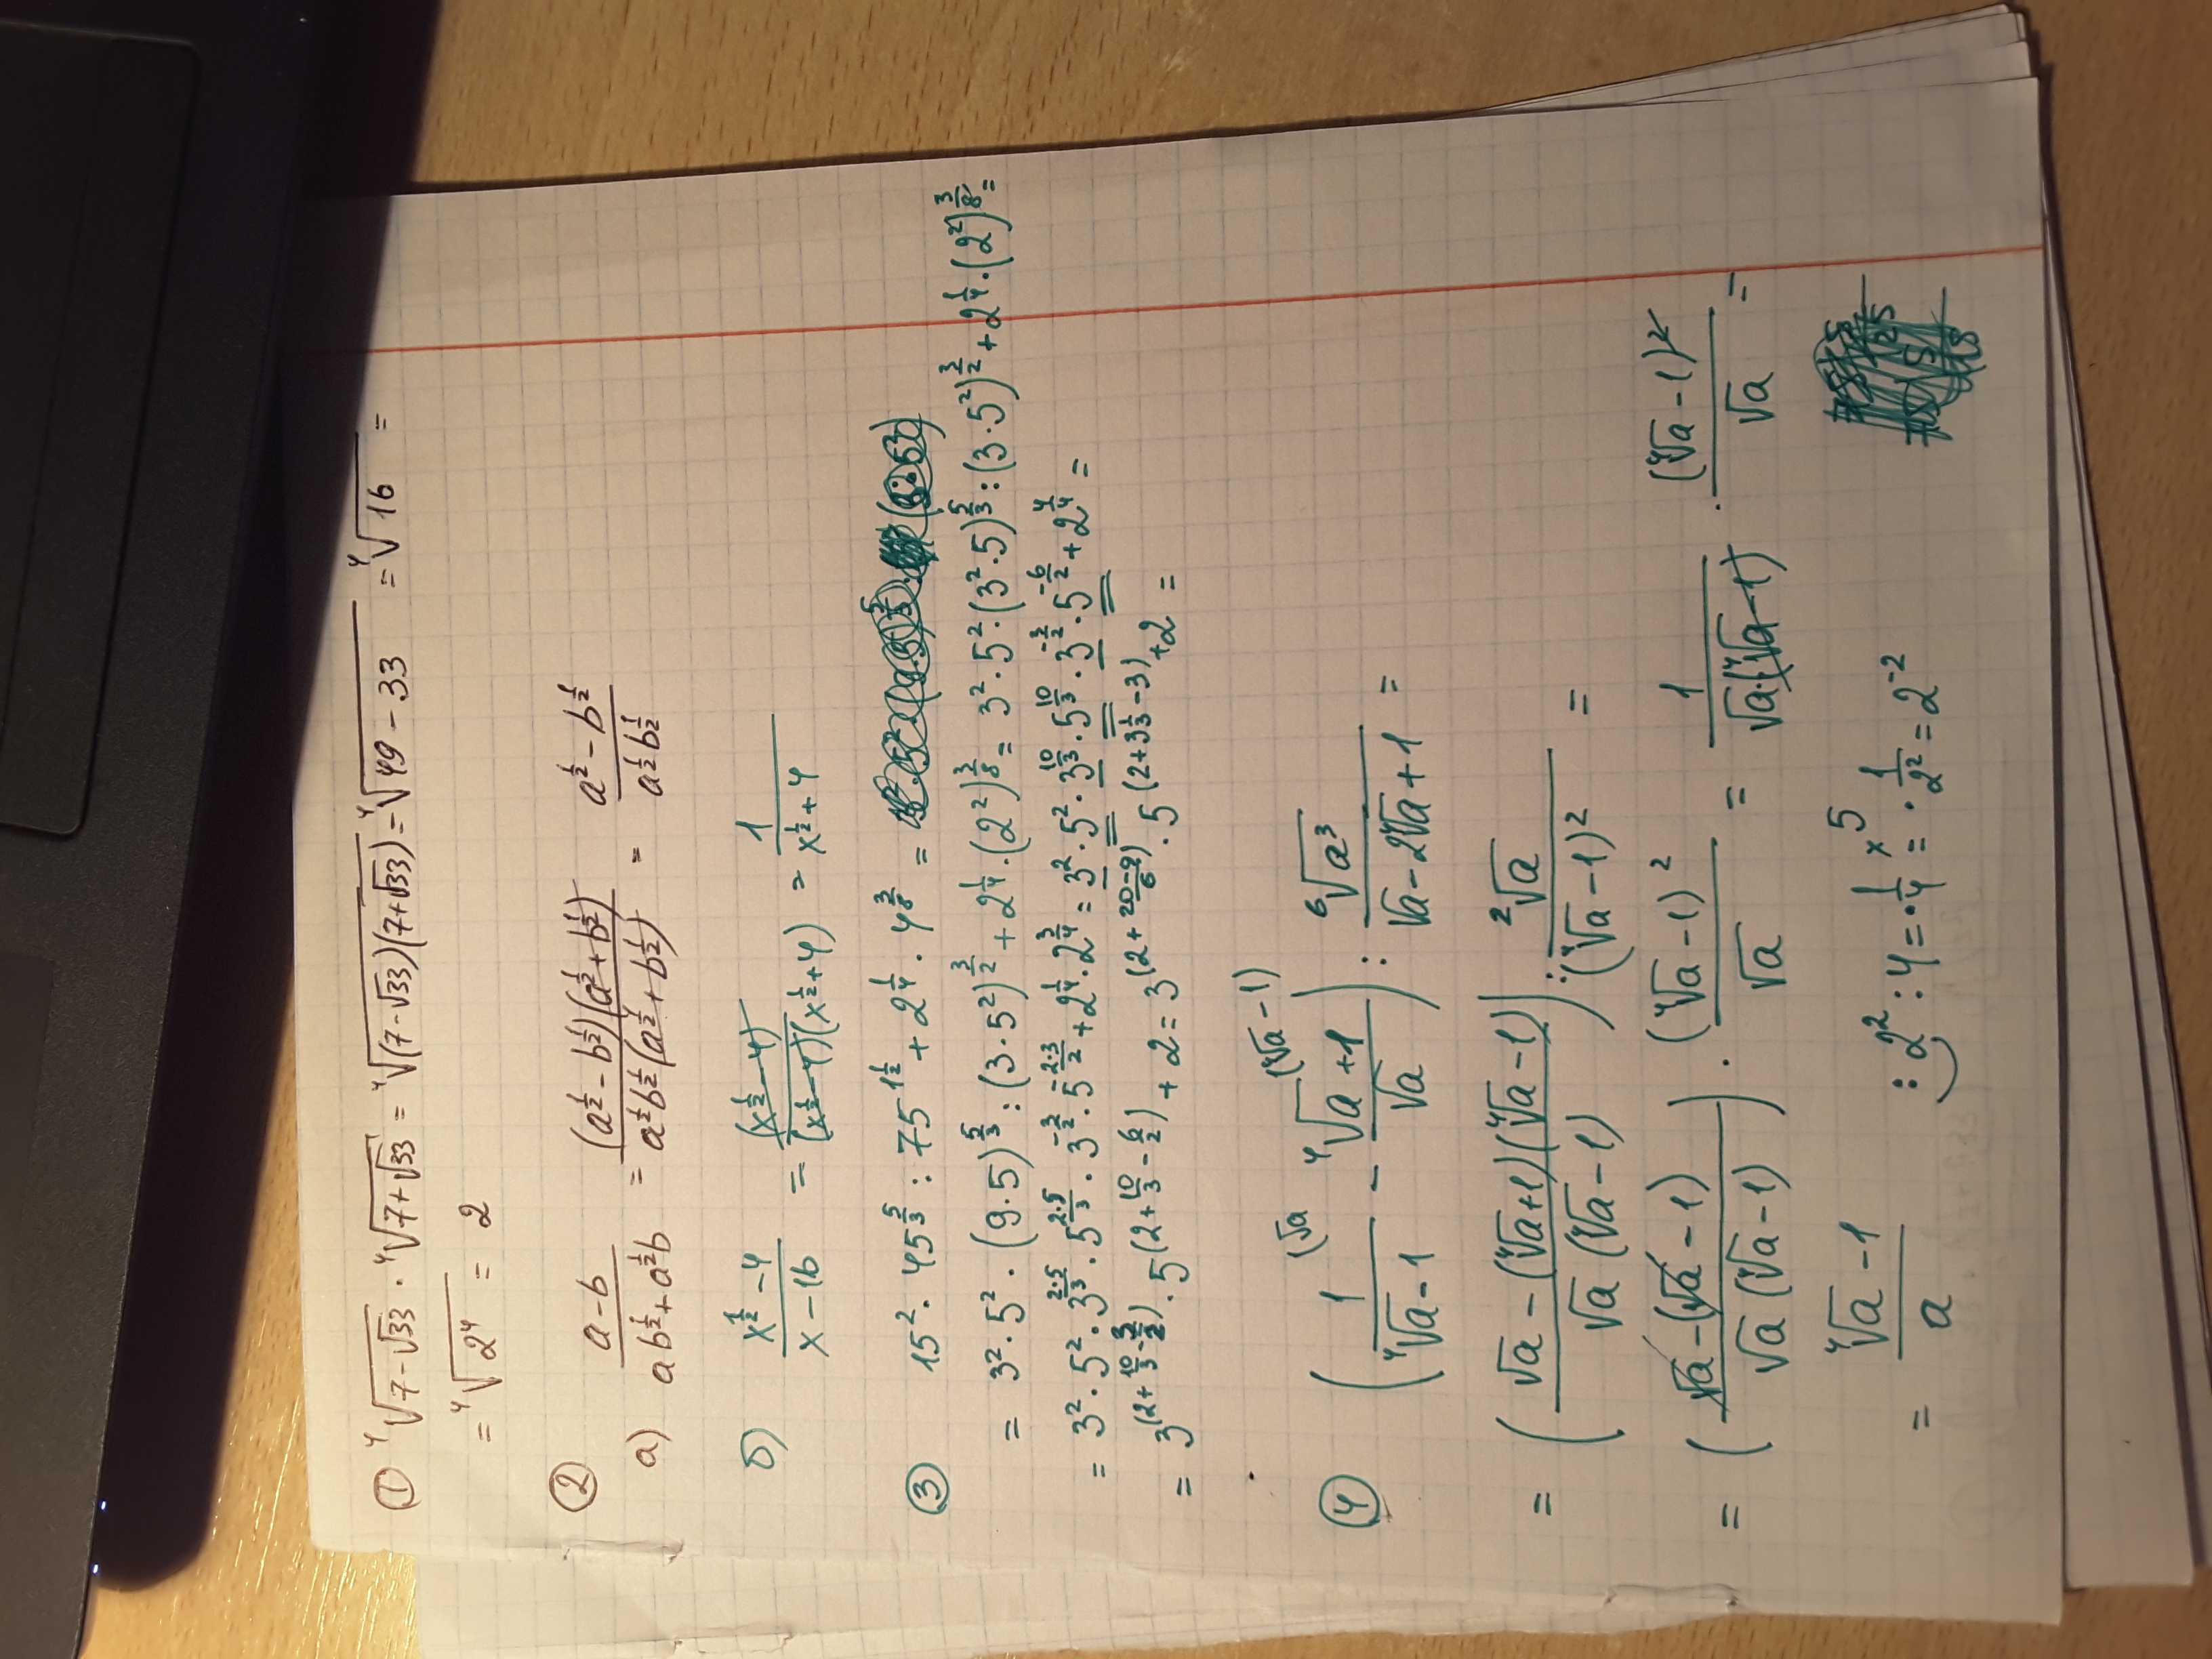 ① ⁴√(7-√33) · ⁴√(7+√33) = ⁴√((7-√33)(7+√33)) = ⁴√(49-33) = ⁴√16 =
= ⁴√(2⁴) = 2
②
а) (a-b)/(ab^(1/2)+a^(1/2)b) = ((a^(1/2)-b^(1/2))(a^(1/2)+b^(1/2)))/(a^(1/2)b^(1/2)(a^(1/2)+b^(1/2))) = (a^(1/2)-b^(1/2))/(a^(1/2)b^(1/2))
б) (x^(1/2)-4)/(x-16) = (x^(1/2)-4)/((x^(1/2)-4)(x^(1/2)+4)) = 1/(x^(1/2)+4)
③ 15² · 45^(5/3) : 75^(1 1/2) + 2^(1/4) · 4^(3/8) =
= 3² · 5² · (9·5)^(5/3) : (3·5²)^(3/2) + 2^(1/4) · (2²)^(3/8) = 3² · 5² · (3²·5)^(5/3) : (3·5²)^(3/2) + 2^(1/4) · (2²)^(3/8) =
= 3² · 5² · 3^(2·5/3) · 5^(2·5/3) · 3^(-3/2) · 5^(-2·3/2) + 2^(1/4) · 2^(3/4) = 3² · 5² · 3^(10/3) · 5^(10/3) · 3^(-3/2) · 5^(-6/2) + 2^(4/4) =
= 3^(2+10/3-3/2) · 5^(2+10/3-6/2) + 2 = 3^(2+(20-9)/6) · 5^(2+3 1/3-3) + 2 =
④ (1/(⁴√a-1) - (⁴√a+1)/√a) : ⁶√(a³)/(√a-2⁴√a+1) =
= ((√a-(⁴√a+1)(⁴√a-1))/(√a(⁴√a-1))) : ²√a/(⁴√a-1)² =
= ((√a-(√a-1))/(√a(⁴√a-1))) · (⁴√a-1)²/√a = 1/(√a·(⁴√a-1)) · (⁴√a-1)²/√a =
= (⁴√a-1)/a
: 2² : 4 = · 1/4 = · 1/2² = 2⁻²
x⁵